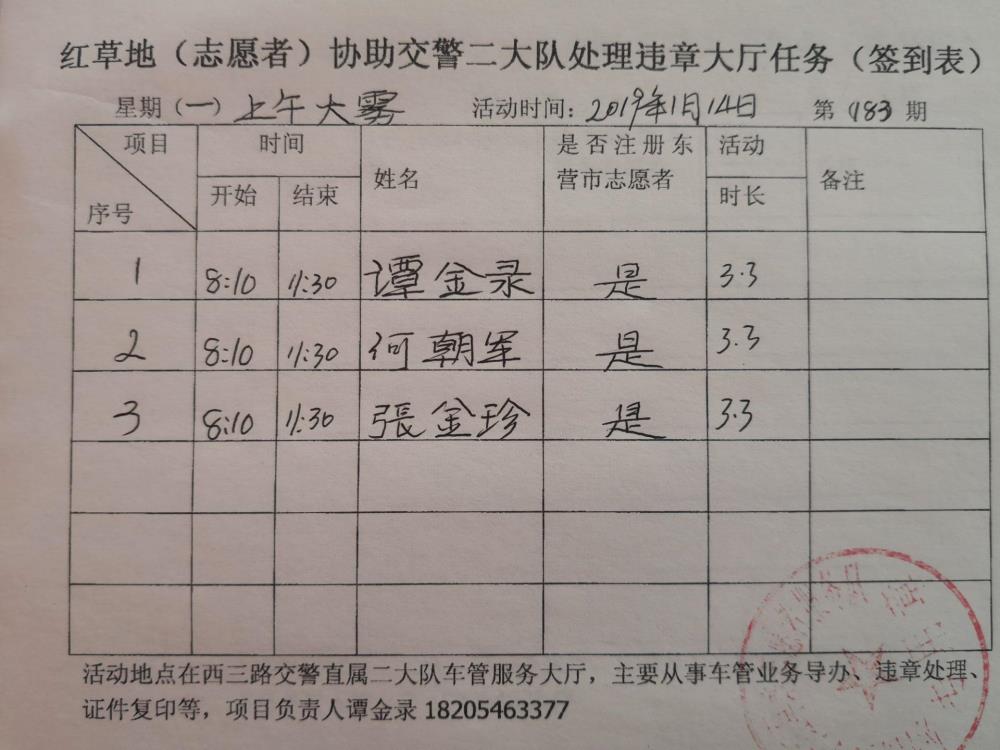 红草地（志愿者）协助交警二大队处理违章大厅任务（签到表）
星期（一）上午大雾 活动时间：2019年1月14日 第 183 期
项目 时间 姓名 是否注册东营市志愿者 活动时长 备注
序号 开始 结束
1 8:10 11:30 谭金录 是 3.3
2 8:10 11:30 何朝军 是 3.3
3 8:10 11:30 張金珍 是 3.3
活动地点在西三路交警直属二大队车管服务大厅，主要从事车管业务导办、违章处理、
证件复印等，项目负责人谭金录 18205463377